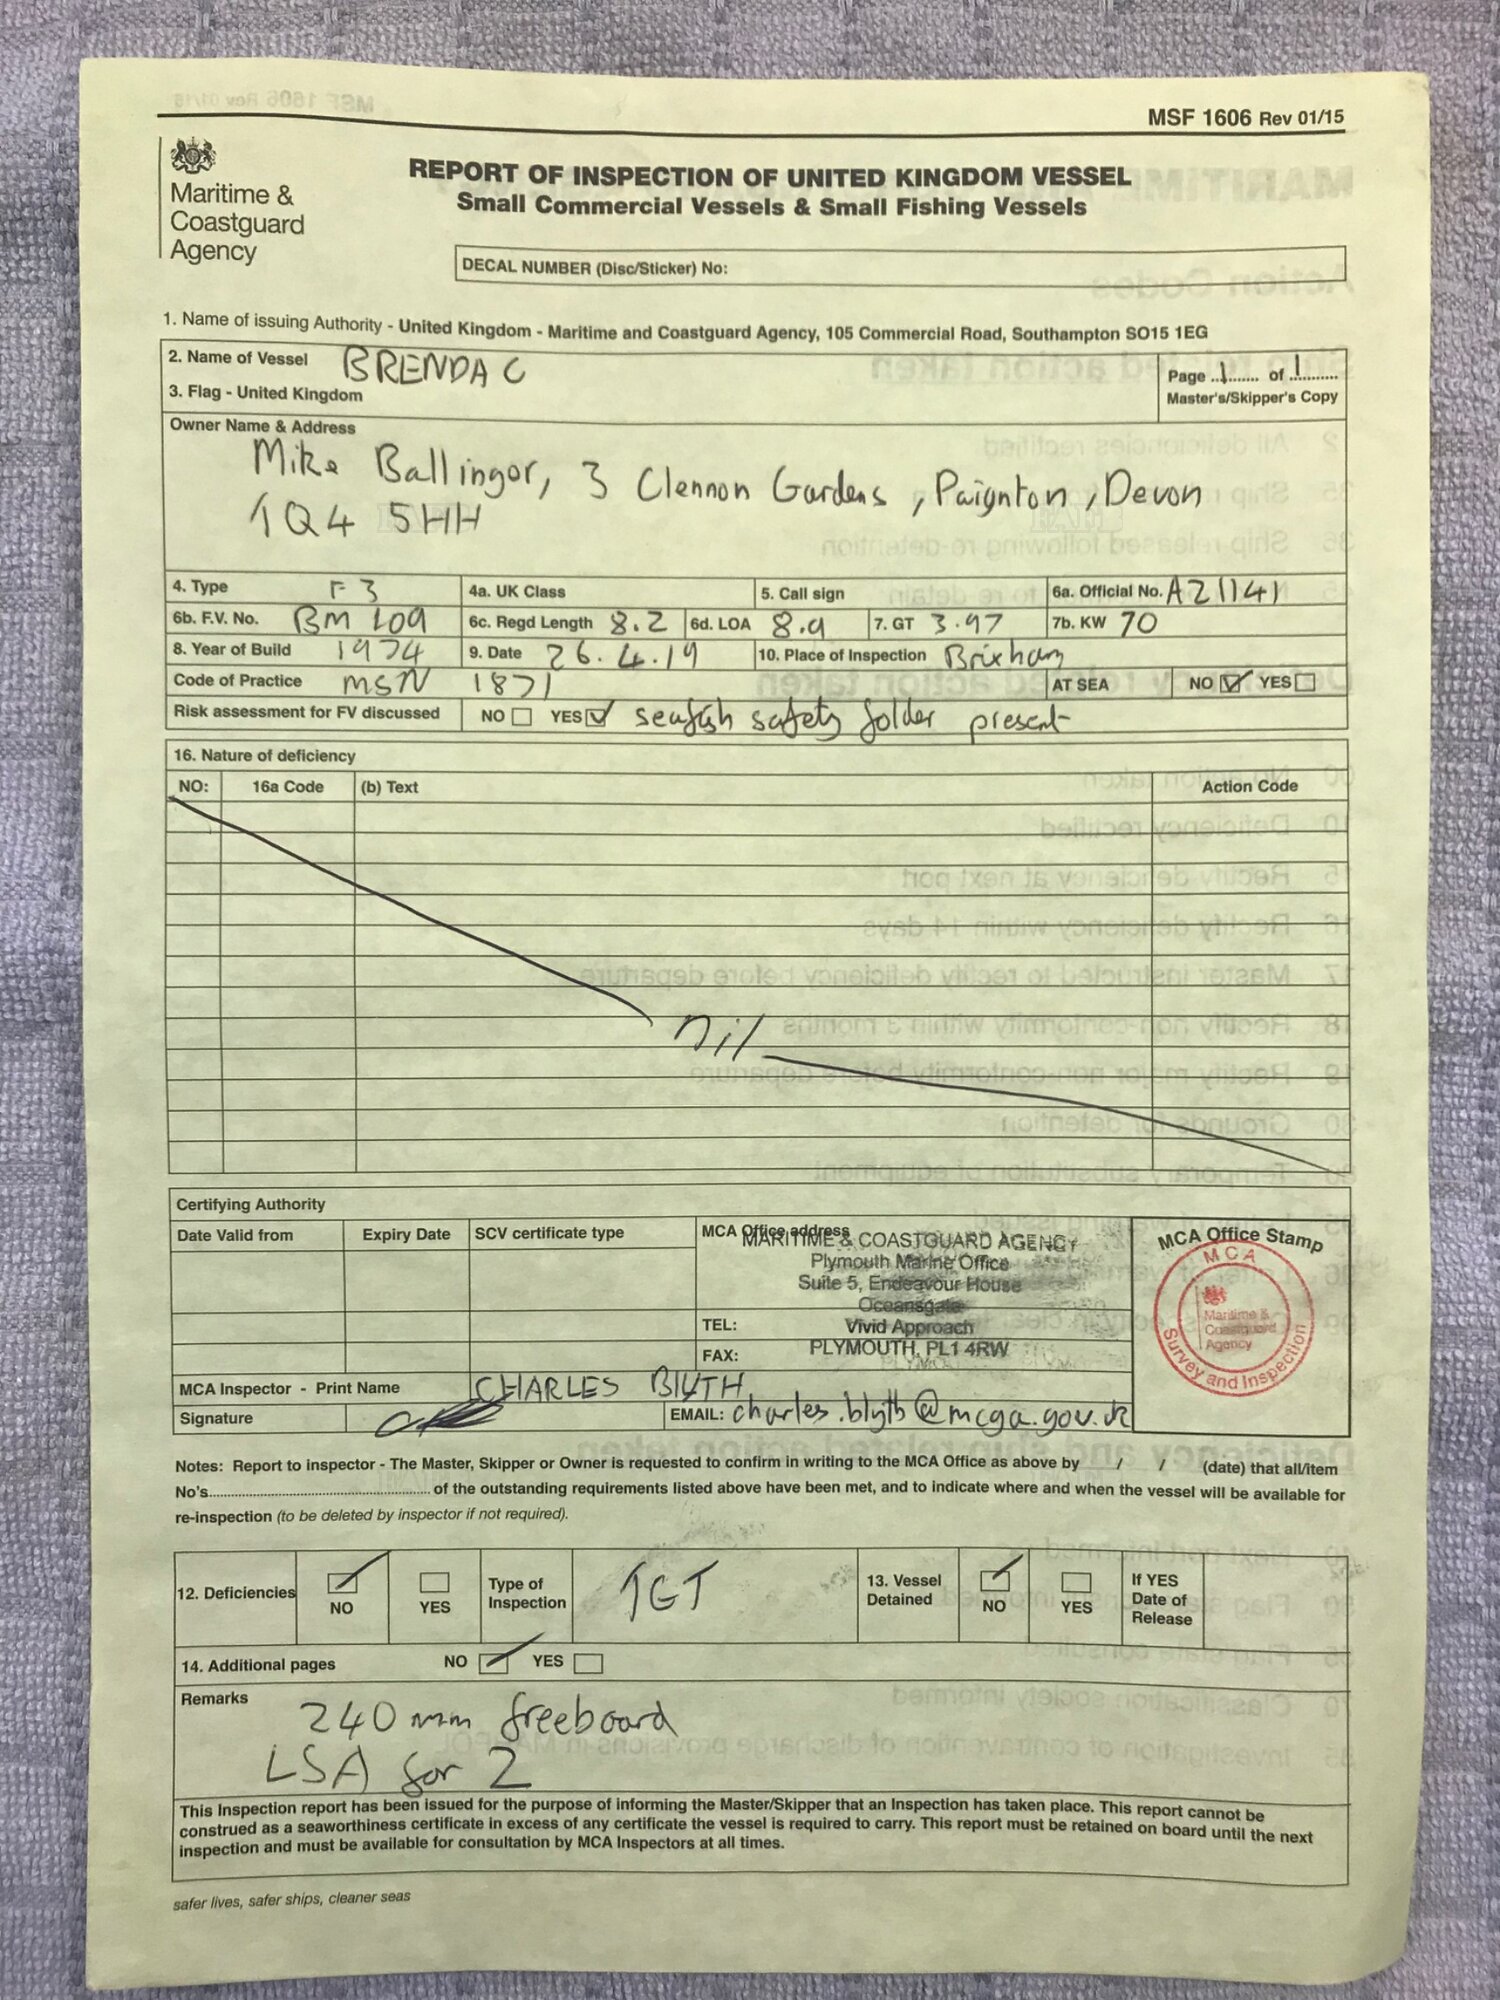 MSF 1606 Rev 01/15
Maritime &
Coastguard
Agency
REPORT OF INSPECTION OF UNITED KINGDOM VESSEL
Small Commercial Vessels & Small Fishing Vessels
DECAL NUMBER (Disc/Sticker) No:
1. Name of issuing Authority - United Kingdom - Maritime and Coastguard Agency, 105 Commercial Road, Southampton SO15 1EG
2. Name of Vessel BRENDA C
3. Flag - United Kingdom
Page 1 of 1
Master's/Skipper's Copy
Owner Name & Address
Mike Ballingor, 3 Clennon Gardens, Paignton, Devon
TQ4 5HH
4. Type F3 4a. UK Class 5. Call sign 6a. Official No. A21141
6b. F.V. No. BM 109 6c. Regd Length 8.2 6d. LOA 8.9 7. GT 3.97 7b. KW 70
8. Year of Build 1974 9. Date 26.4.19 10. Place of Inspection Brixham
Code of Practice MSN 1871 AT SEA NO YES
Risk assessment for FV discussed NO YES seafish safety folder present
16. Nature of deficiency
NO: 16a Code (b) Text Action Code
nil
Certifying Authority
Date Valid from Expiry Date SCV certificate type MCA Office address
MARITIME & COASTGUARD AGENCY
Plymouth Marine Office
Suite 5, Endeavour House
Oceansgate
TEL: Vivid Approach
FAX: PLYMOUTH, PL1 4RW
MCA Office Stamp
MCA
Maritime &
Coastguard
Agency
Survey and Inspection
MCA Inspector - Print Name CHARLES BLYTH
Signature EMAIL: charles.blyth@mcga.gov.uk
Notes: Report to inspector - The Master, Skipper or Owner is requested to confirm in writing to the MCA Office as above by / / (date) that all/item
No's of the outstanding requirements listed above have been met, and to indicate where and when the vessel will be available for
re-inspection (to be deleted by inspector if not required).
12. Deficiencies NO YES Type of Inspection TGT 13. Vessel Detained NO YES If YES Date of Release
14. Additional pages NO YES
Remarks
240mm freeboard
LSA for 2
This Inspection report has been issued for the purpose of informing the Master/Skipper that an Inspection has taken place. This report cannot be
construed as a seaworthiness certificate in excess of any certificate the vessel is required to carry. This report must be retained on board until the next
inspection and must be available for consultation by MCA Inspectors at all times.
safer lives, safer ships, cleaner seas